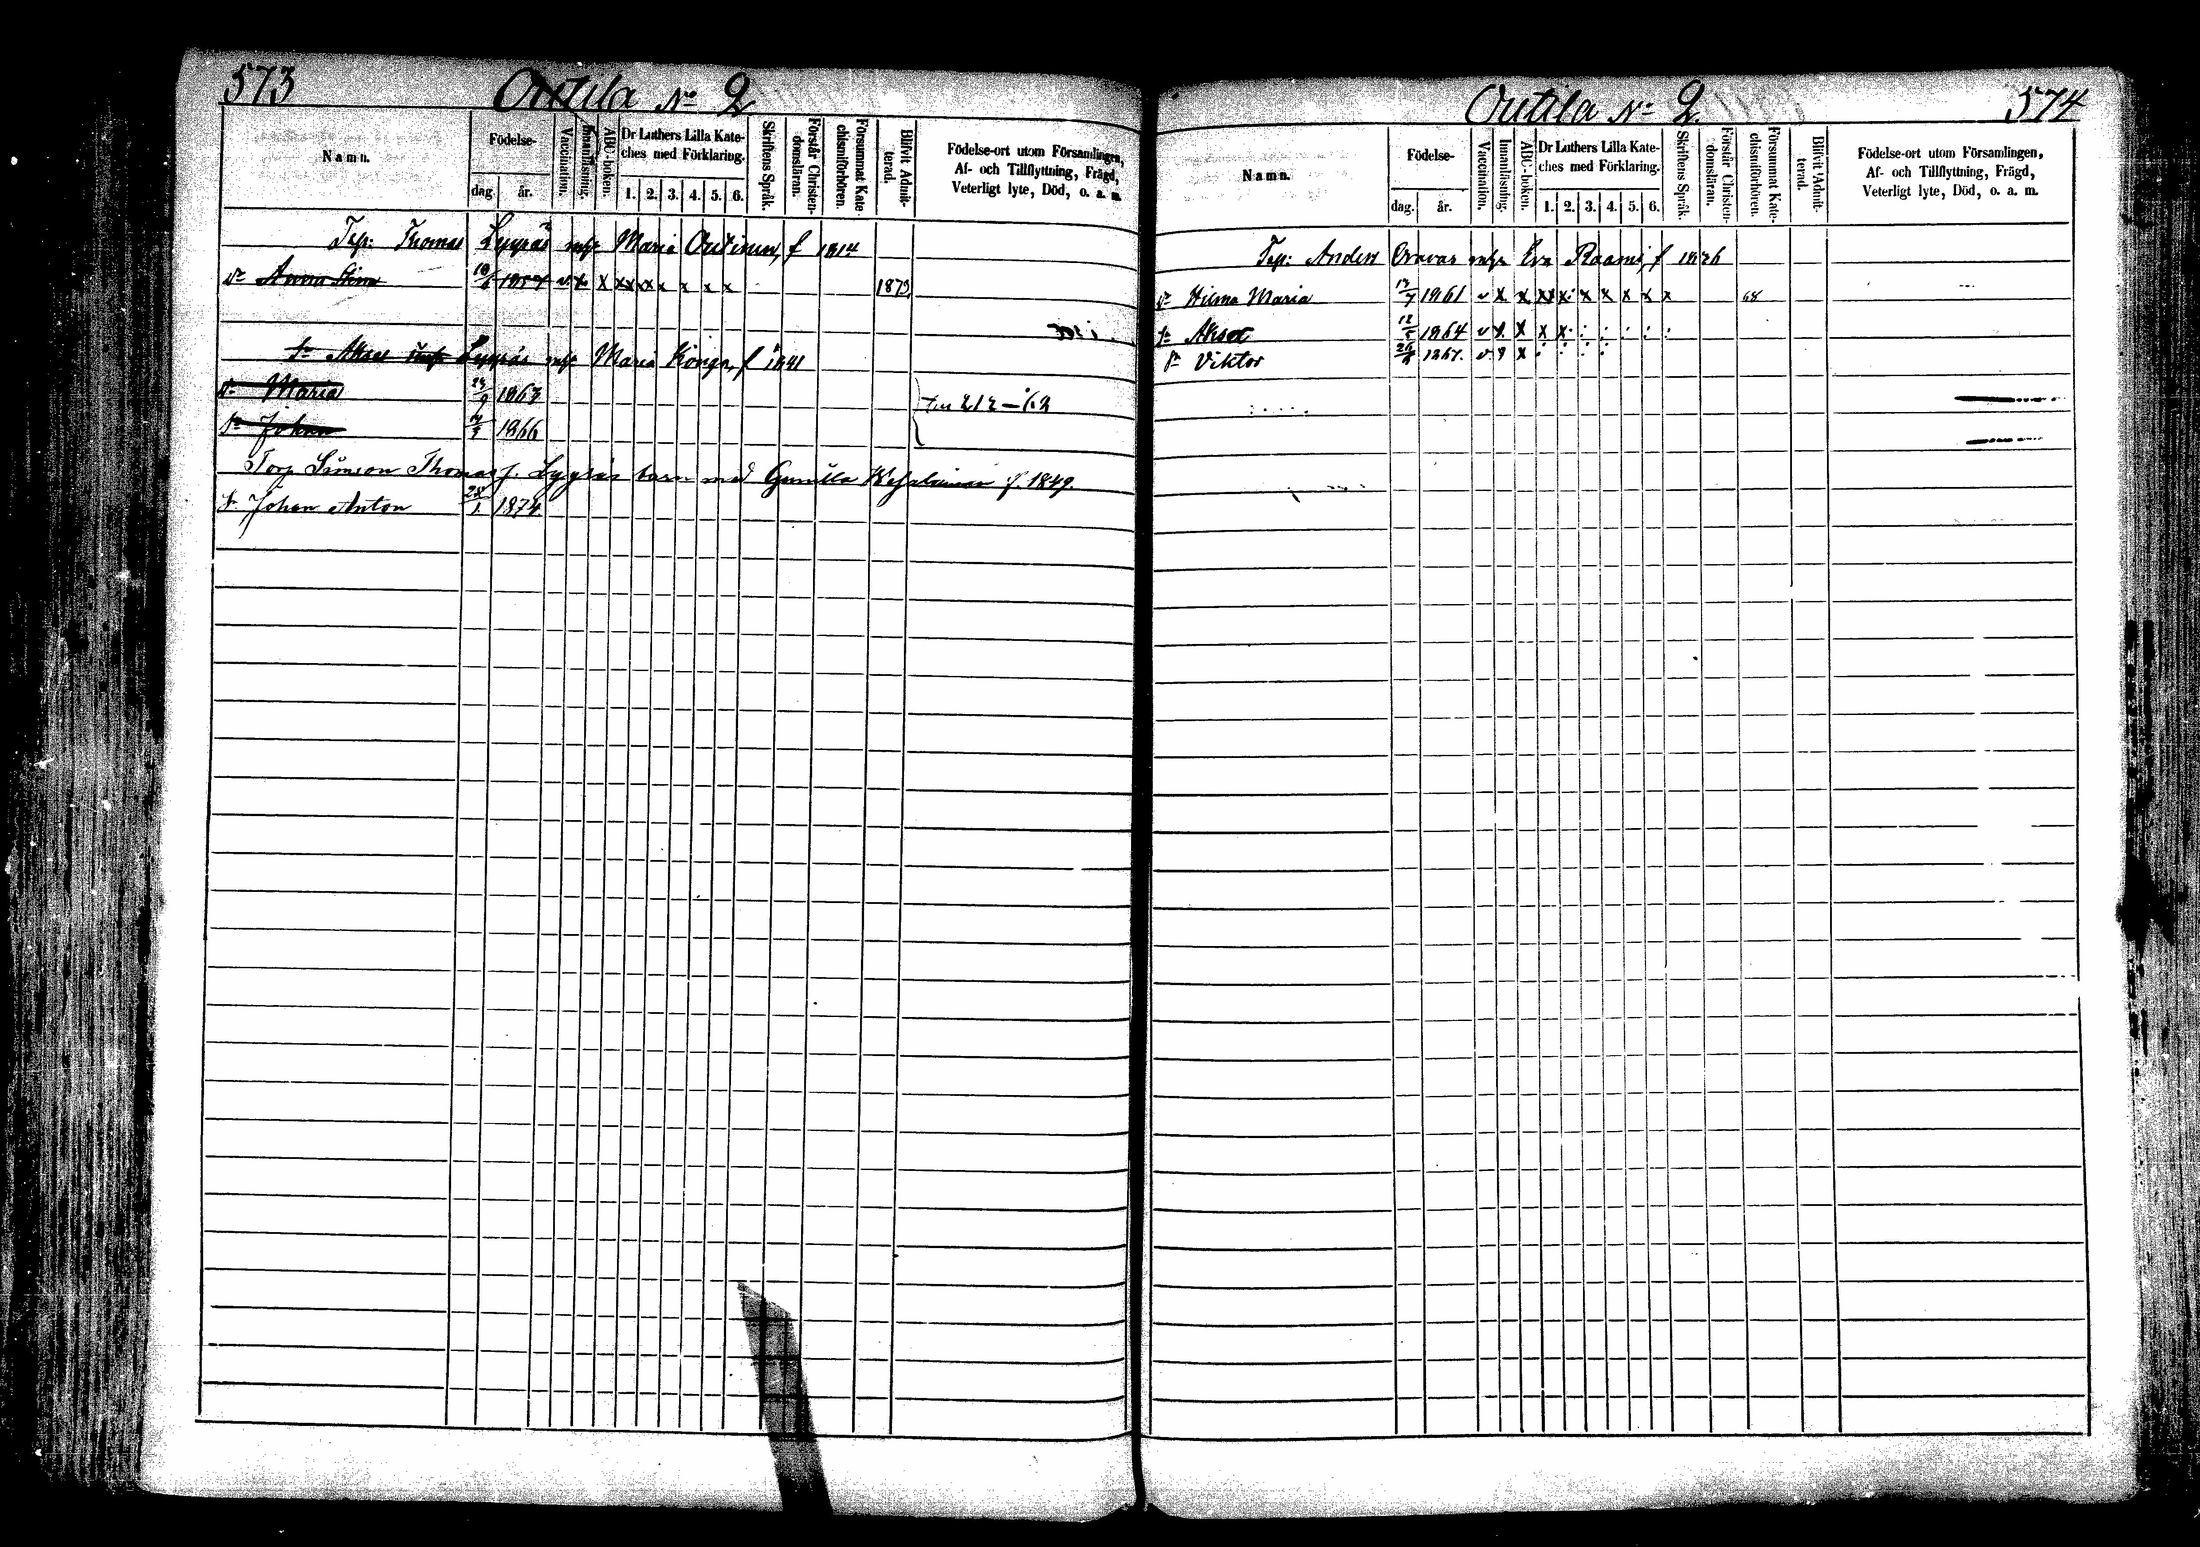 573 Outila No 2
Namn. Födelse- dag. år. Vaccination. Innanläsning. ABC-boken. Dr Luthers Lilla Kateches med Förklaring. 1. 2. 3. 4. 5. 6. Skriftens Språk. Förstår Christendomsläran. Försummat Katechismiförhören. Blifvit Admitterad. Födelse-ort utom Församlingen, Af- och Tillflyttning, Frägd, Veterligt lyte, Död, o. a. m.
Thomas Lyyräs Maria Outinen, f 1814
Dr Anna 10/6 1857 v x x xx xx x x x x 1873
Sn Lyyräs Maria Konga, f 1841
Dr Maria 1863 212 —
Sn Johan 1866
Torp Simson Thomas Lyyräs barn med Gunilla f. 1849.
Sn Johan Anton 28/1 1874
Outila No 2. 574
Namn. Födelse- dag. år. Vaccination. Innanläsning. ABC-boken. Dr Luthers Lilla Kateches med Förklaring. 1. 2. 3. 4. 5. 6. Skriftens Språk. Förstår Christendomsläran. Försummat Katechismiförhören. Blifvit Admitterad. Födelse-ort utom Församlingen, Af- och Tillflyttning, Frägd, Veterligt lyte, Död, o. a. m.
Anders Oravas Eva Raami, f 1826
Dr Hilma Maria 13/7 1861 v x x xx x: x x x x x 68
Sn Aksel 12/5 1864 v x x x x: : : : : :
Sn Viktor 1867. v x x : : : :